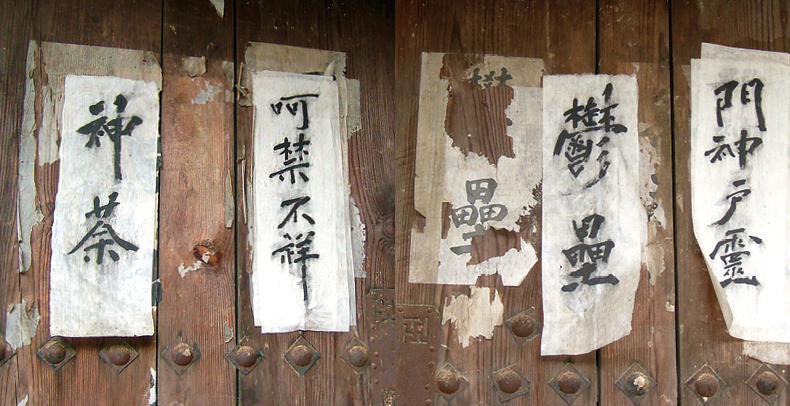 門神戶靈
鬱壘
壘
呵禁不祥
神荼